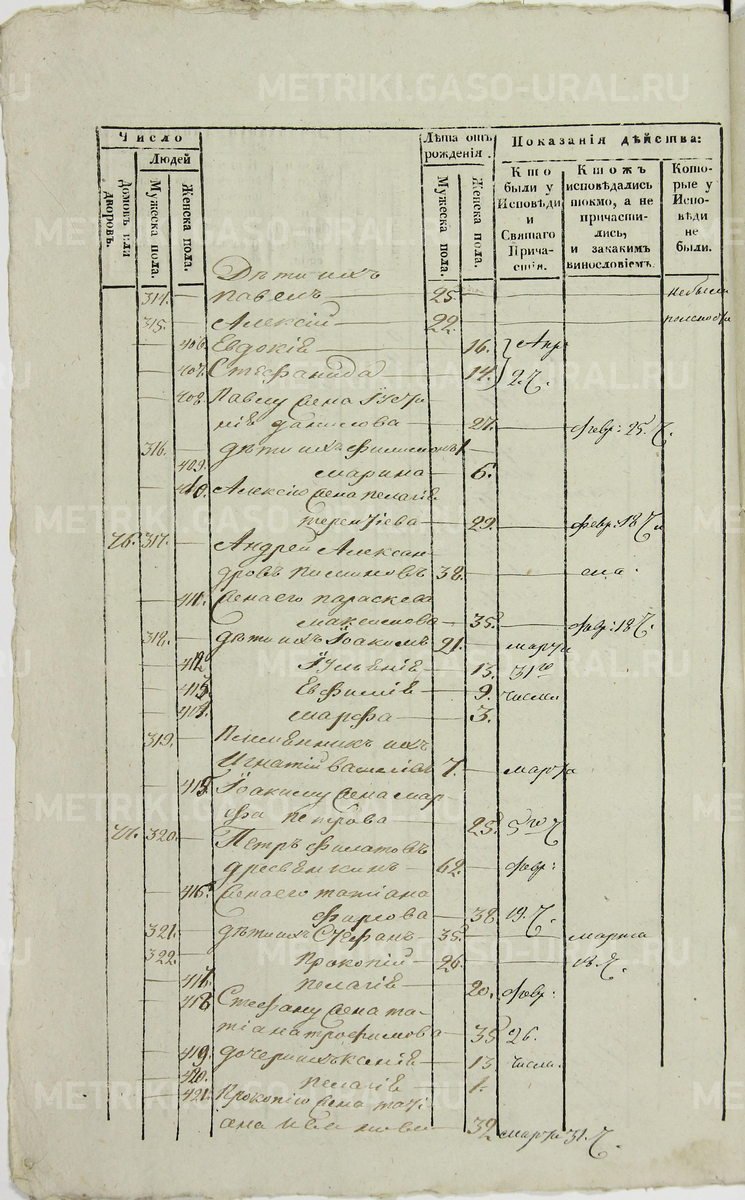 METRIKI.GASO-URAL.RU
Число
Людей
Домовъ или дворовъ.
Мужеска пола.
Женска пола.
Лѣта отъ рожденія.
Мужеска пола.
Женска пола.
Показанія дѣйства:
Кто были у Исповѣди и Святаго Причастія.
Ктожъ исповѣдались токмо, а не причастились, и закакимъ винословіемъ.
Которые у Исповѣди не были.
Дѣти ихъ
314. Павелъ 25. небыли
315. Алексій 22.
406. Евдокія 16. Апр:
407. Стефанида 14. 2. Ч.
408. Павлу жена Іусти
нія Данилова 27. февр: 25 Ч.
316. дѣти ихъ Филимонъ 1.
409. Марина 6.
410. Алексію жена Пелагія
Терентіева 29. февр: 18 Ч
317. Андрей Алексан
дровъ 38.
411. Жена его Параскева
Максимова 35. февр: 18 Ч.
318. дѣти ихъ Іоакимъ 21. марта
412 Іуліанія 13. 31го
413 Евфимія 9. числа
414. Марфа 3.
319. Племянникъ ихъ
Игнатій Васильевъ 7. марта
415. Іоакиму жена Мар
фа Петрова 25. 5го Ч
320. Петръ Филатовъ
62. февр:
416. Жена его Татіана
38. 19. Ч.
321. дѣти ихъ Стефанъ 35. марта
322. Прокопій 26. 18. Ч.
417 Пелагія 20. февр:
418 Стефану жена Та
тіана Трофимова 35 26.
419. дочери ихъ Ксенія 13 числа.
420. Пелагія 1.
421. Прокопію жена Таті
ана 32 марта 31. Ч.